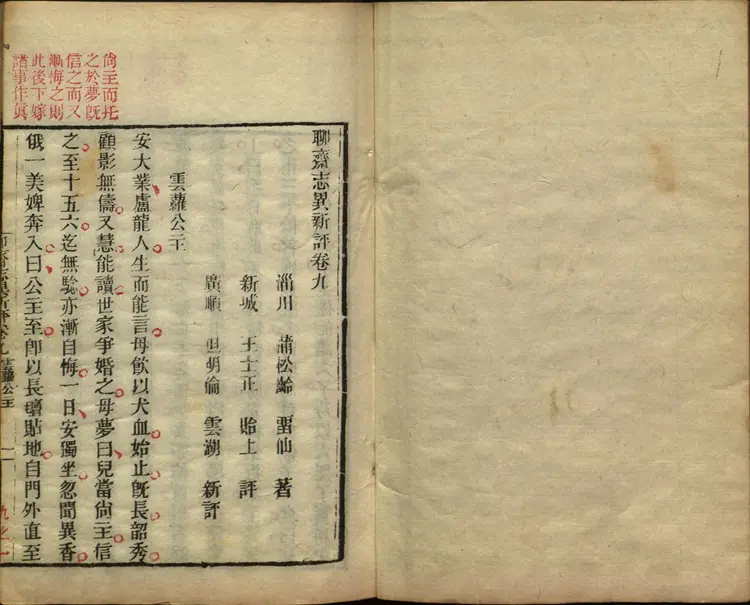 聊齋志異新評卷九
淄川 蒲松齡 畱仙 著
新城 王士正 貽上 評
廣順 但明倫 雲湖 新評
雲蘿公主
安大業盧龍人生而能言母飲以犬血始止旣長韶秀
顧影無儔又慧能讀世家爭婚之母夢曰兒當尙主信
之至十五六迄無驗亦漸自悔一日安獨坐忽聞異香
俄一美婢奔入曰公主至卽以長氊貼地自門外直至
尙主而托
之於夢旣
信之而又
漸悔之則
此後下嫁
諸事作眞
聊齋志異新評卷九 雲蘿公主 一
九之一